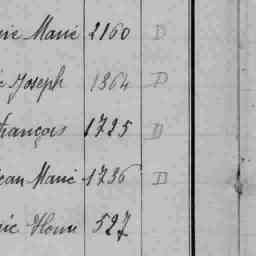 Marie 2160 D
Joseph 1364 D
François 1725 D
Jean Marie 1736 D
527